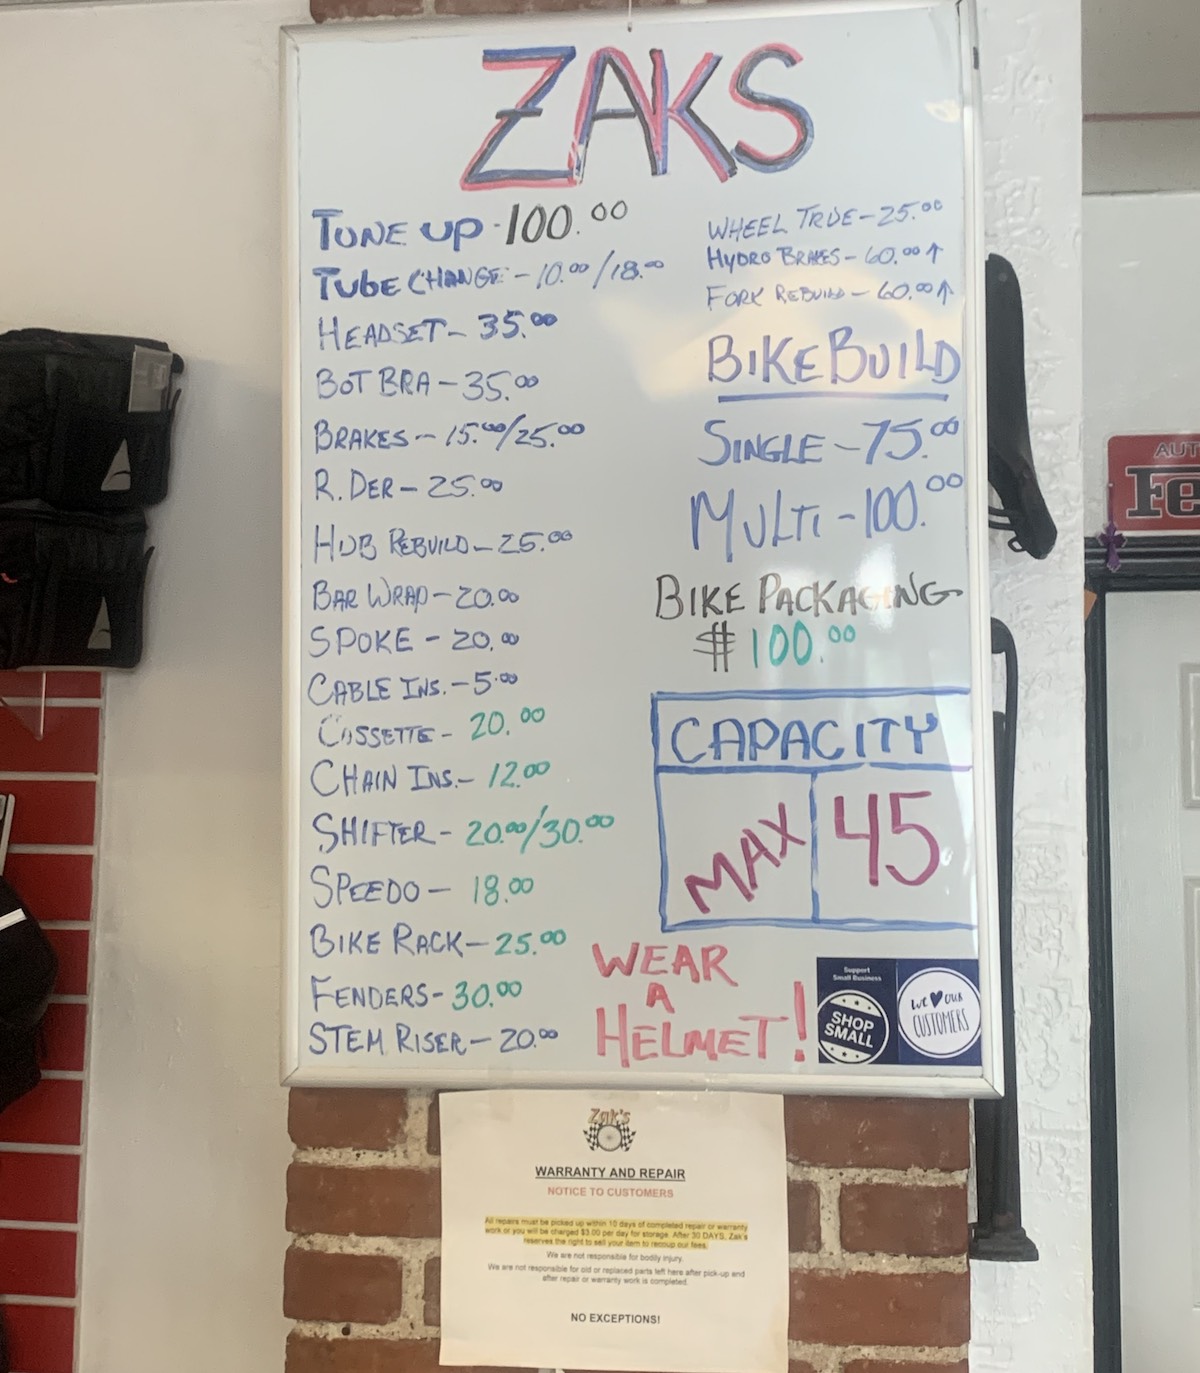 ZAKS
TUNE UP - 100.00
TUBE CHANGE - 10.00/18.00
HEADSET - 35.00
BOT BRA - 35.00
BRAKES - 15.00/25.00
R. DER - 25.00
HUB REBUILD - 25.00
BAR WRAP - 20.00
SPOKE - 20.00
CABLE INS. - 5.00
CASSETTE - 20.00
CHAIN INS. - 12.00
SHIFTER - 20.00/30.00
SPEEDO - 18.00
BIKE RACK - 25.00
FENDERS - 30.00
STEM RISER - 20.00
WHEEL TRUE - 25.00
HYDRO BRAKES - 60.00 ↑
FORK REBUILD - 60.00 ↑
BIKE BUILD
SINGLE - 75.00
MULTI - 100.00
BIKE PACKAGING
$ 100.00
CAPACITY
MAX 45
WEAR
A
HELMET!
Support
Small Business
SHOP
SMALL
WE ♥ OUR
CUSTOMERS
Zak's
WARRANTY AND REPAIR
NOTICE TO CUSTOMERS
All repairs must be picked up within 10 days of completed repair or warranty
work or you will be charged $3.00 per day for storage. After 30 DAYS, Zak's
reserves the right to sell your item to recoup our fees.
We are not responsible for bodily injury.
We are not responsible for old or replaced parts left here after pick-up and
after repair or warranty work is completed.
NO EXCEPTIONS!
AUT
Fe